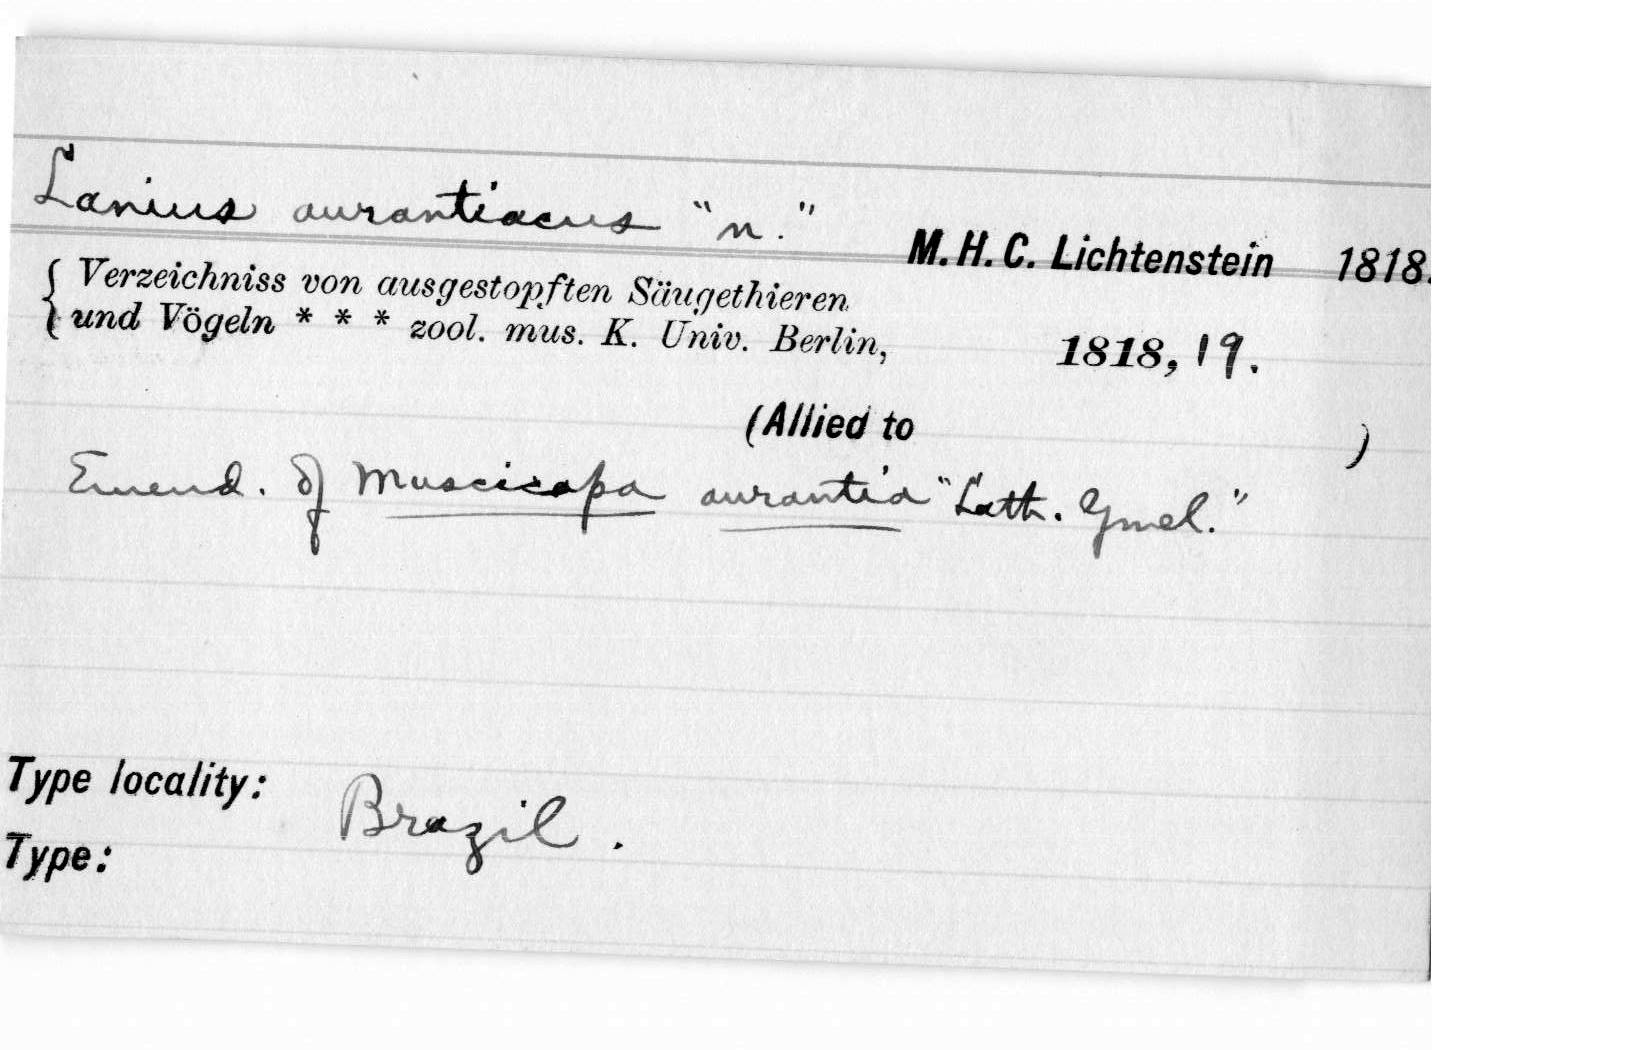 Lanius aurantiacus "n."
M. H. C. Lichtenstein 1818.
{ Verzeichniss von ausgestopften Säugethieren
und Vögeln * * * zool. mus. K. Univ. Berlin, 1818, 19.
(Allied to )
Emend. of Muscicapa aurantia "Lath. Gmel."
Type locality: Brazil.
Type: